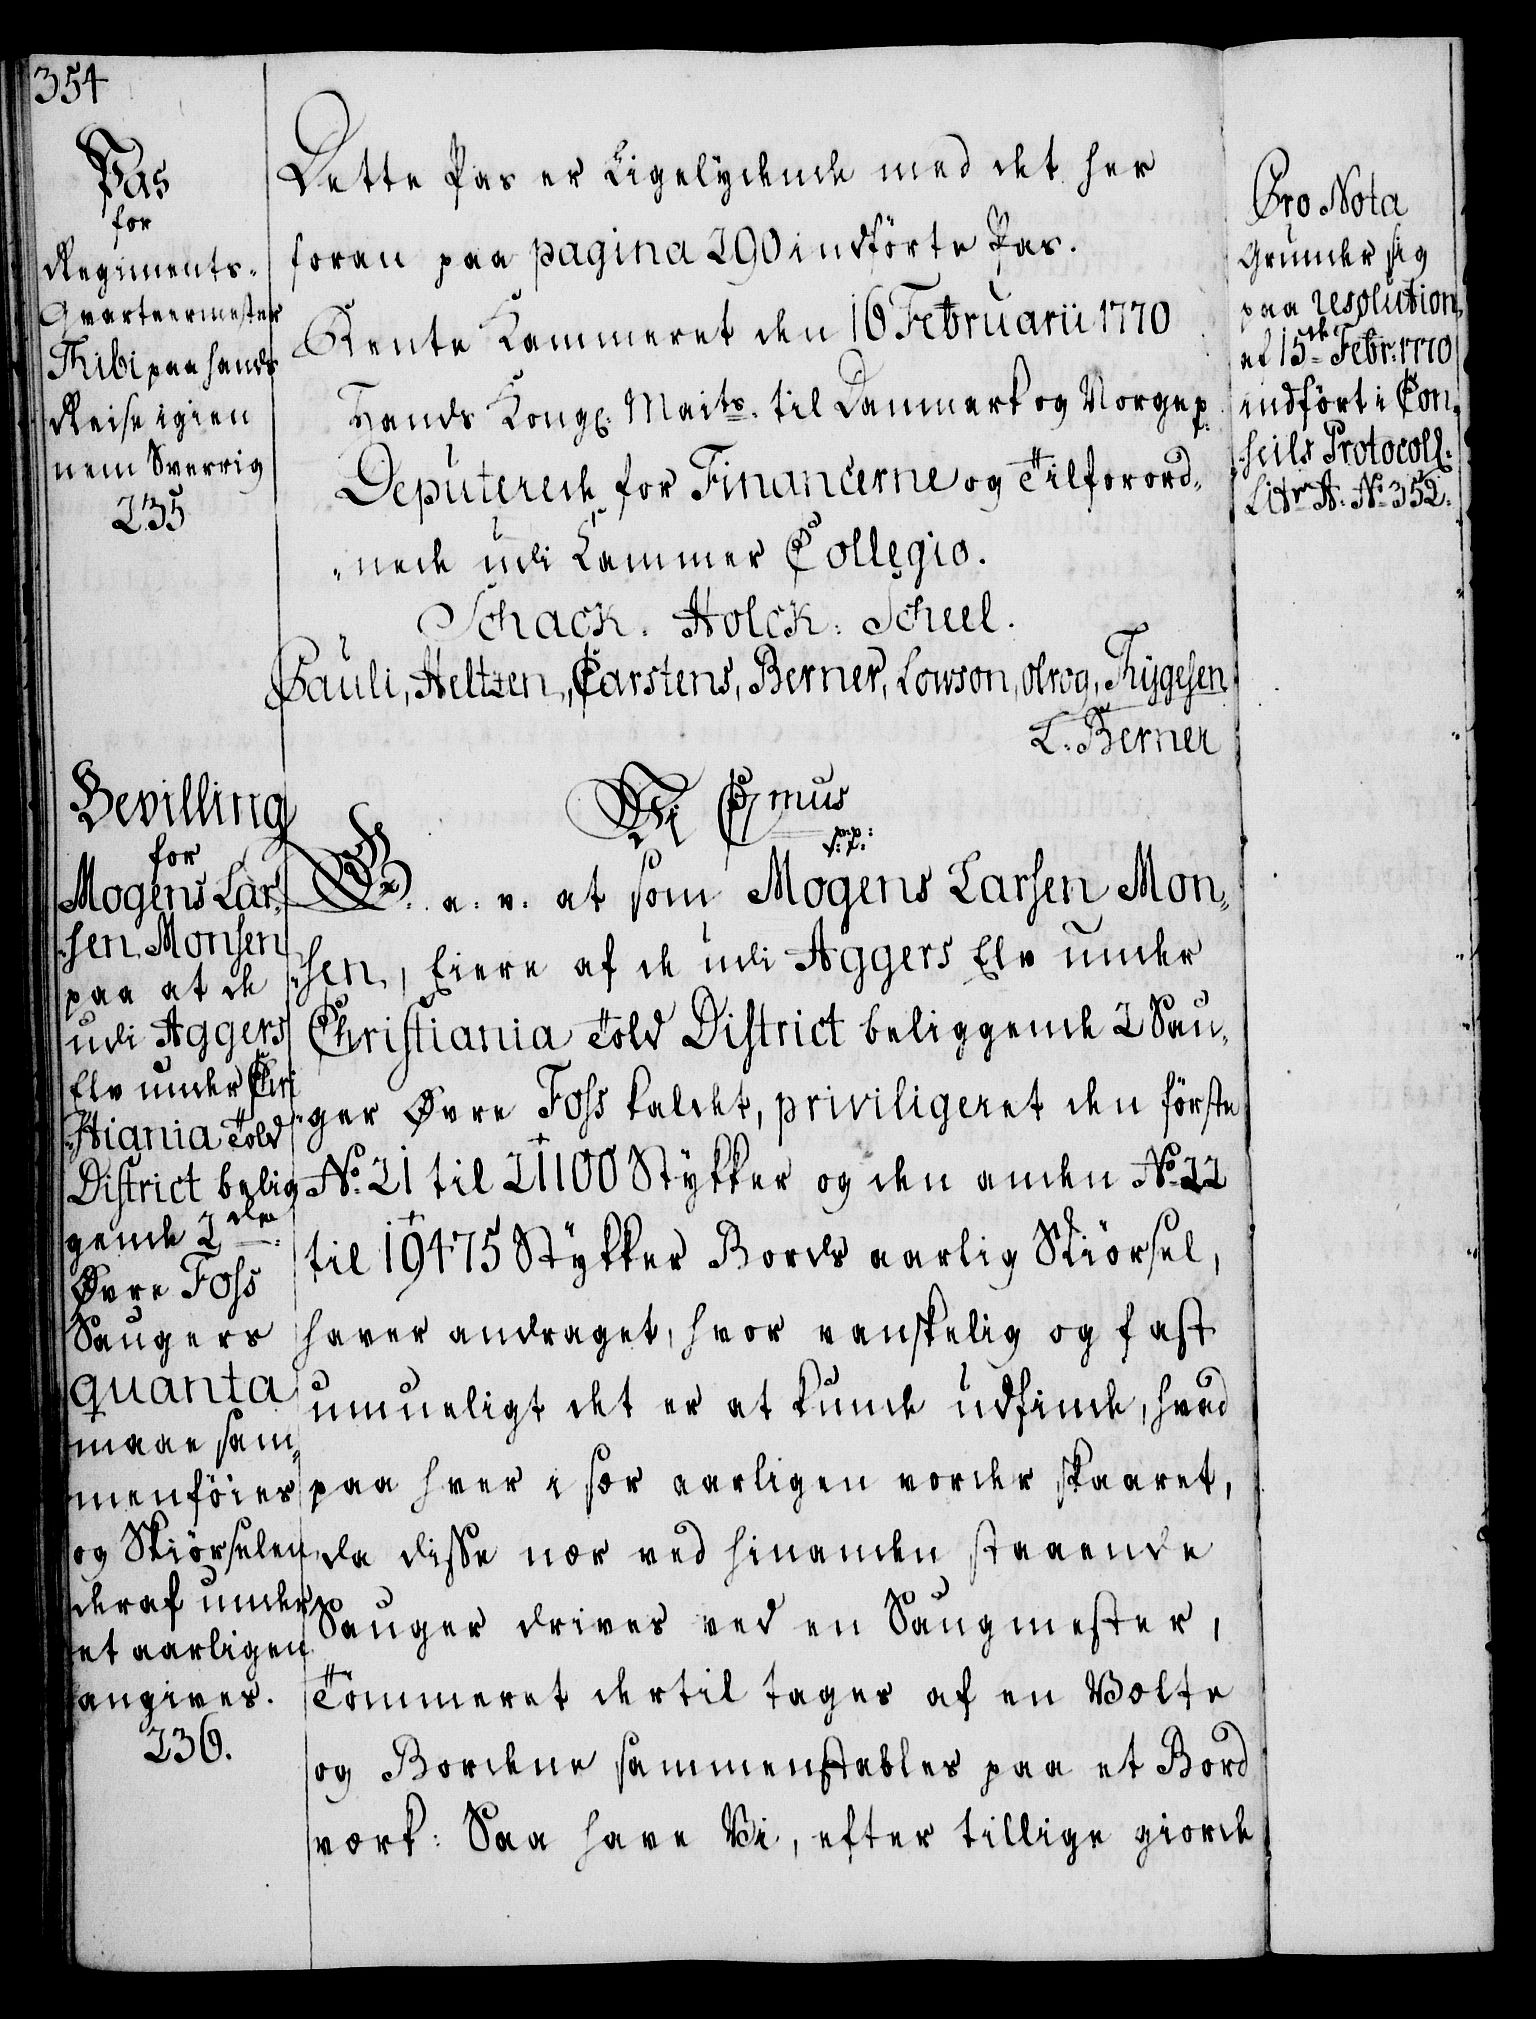 354
Pas
for
Regiments-
Qvarteermester
Thibi paa hands
Reise igien
nem Sverrig
235
Dette Pas er Ligelydende med det her
foran paa pagina 290 indförte Pas.
Rente Kammeret den 16 Februarii 1770
Hands Kongl. Maits. til Danmark og Norge p.
Deputerede for Financerne og Tilforord„
„nede udi Kammer Collegio.
Schack. Holck. Scheel.
Pauli, Heltzen, Carstens, Berner, Lowson, Olrog, Thygesen
L. Berner
Pro Nota
Grunder sig
paa resolution
af 15de Febr: 1770
indfört i Con„
„seils Protocoll.
Litr A. No 352.
Bevilling
for
Mogens Lar„
„sen Monsen
paa at de
udi Aggers
Elv under Chri
„stiania Told
District belig
gende 2de
Øvre Foss
Saugers
quanta
maae sam„
menföies
og Skiörselen
deraf under
et aarligen
angives.
236.
Vi C7mus
p.p:
G. a. v. at som Mogens Larsen Mon„
„sen, Eiere af de udi Aggers Elv under
Christiania Told District beliggende 2 Sau„
„ger Øvre Foss kaldet, priviligeret den förste
No. 21 til 21100 Stykker og den anden No. 22
til 19475 Stykker Bords aarlig Skiörsel,
haver andraget, hvor vanskelig og fast
umueligt det er at kunde udfinde, hvad
paa hver i sær aarligen vorder skaaret,
da disse nær ved hinanden staaende
Sauger drives ved en Saugmester,
Tömmeret dertil tages af en Volte
og Bordene sammenstables paa et Bord
værk: Saa have Vi, efter tillige giorde